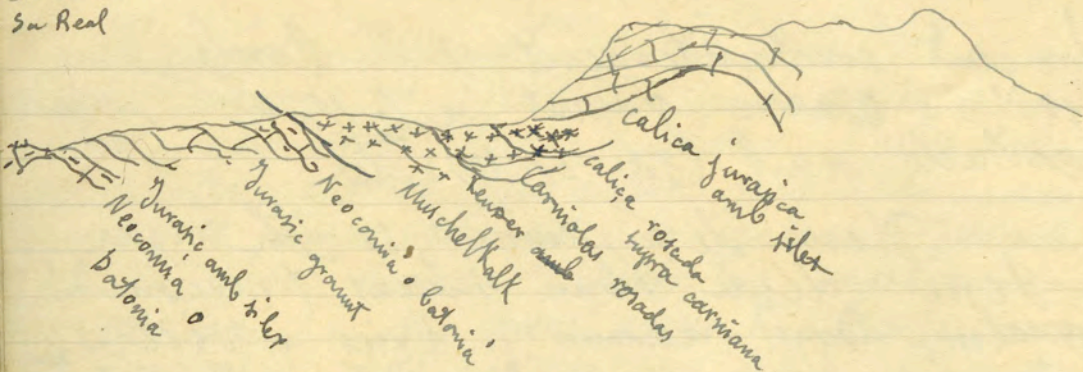 Sa Real
Neocomià o
batonià
Jurasic amb silex
Jurasic gramut
Neocomià o batonià
Muschelkalk
Keuper amb
Carniolas rosadas
caliça rosada
supra carniana
calica jurasica
amb silex